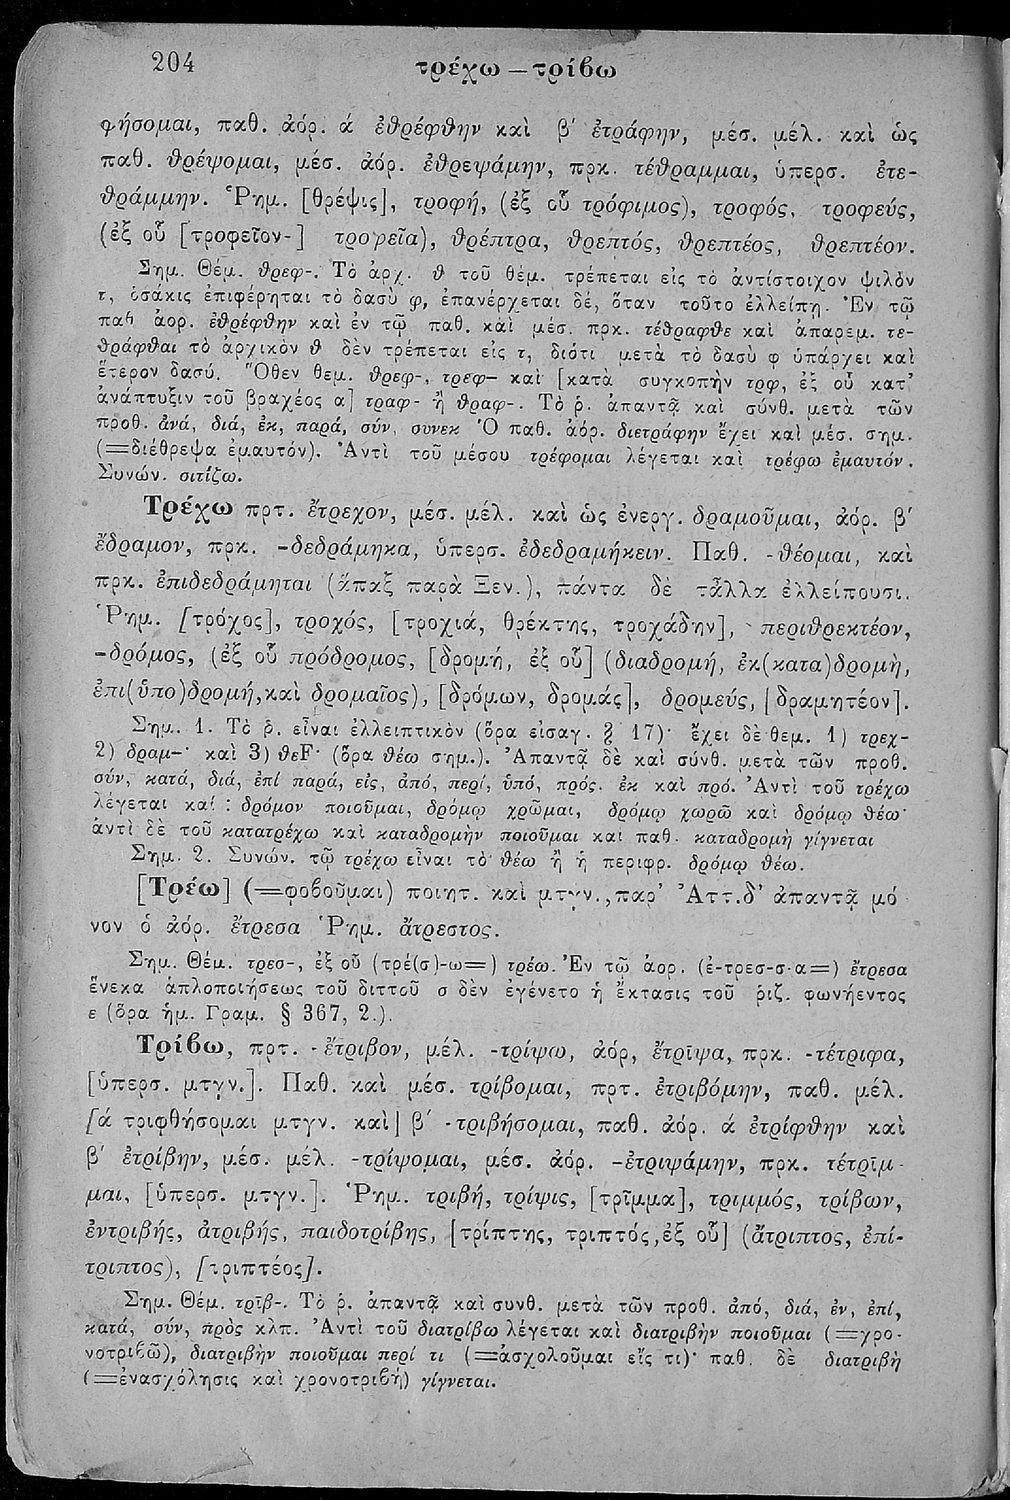 204
τρέχω — τρίβω
φήσομαι, παθ. ἀόρ. ά ἐθρέφθην καὶ β΄ ἐτράφην, μέσ. μέλ. καὶ ὡς
παθ. θρέψομαι, μέσ. ἀόρ. ἐθρεψάμην, πρκ. τέθραμμαι, ὑπερσ. ἐτε-
θράμμην. Ῥημ. [θρέψις], τροφή, (ἐξ οὗ τρόφιμος), τροφός, τροφεύς,
(ἐξ οὗ [τροφεῖον-] τροφεῖα), θρέπτρα, θρεπτός, θρεπτέος, θρεπτέον.
Σημ. Θέμ. θρεφ-. Τὸ ἀρχ. θ τοῦ θέμ. τρέπεται εἰς τὸ ἀντίστοιχον ψιλὸν
τ, ὁσάκις ἐπιφέρηται τὸ δασὺ φ, ἐπανέρχεται δέ, ὅταν τοῦτο ἐλλείπῃ. Ἐν τῷ
παθ ἀορ. ἐθρέφθην καὶ ἐν τῷ παθ. καὶ μέσ. πρκ. τέθραφθε καὶ ἀπαρεμ. τε-
θράφθαι τὸ ἀρχικὸν θ δὲν τρέπεται εἰς τ, διότι μετὰ τὸ δασὺ φ ὑπάρχει καὶ
ἕτερον δασύ. Ὅθεν θεμ. θρεφ-, τρεφ- καὶ [κατὰ συγκοπὴν τρφ, ἐξ οὗ κατ'
ἀνάπτυξιν τοῦ βραχέος α] τραφ- ἢ θραφ-. Τὸ ῥ. ἀπαντᾷ καὶ σύνθ. μετὰ τῶν
προθ. ἀνά, διά, ἐκ, παρά, σύν, συνεκ Ὁ παθ. ἀόρ. διετράφην ἔχει καὶ μέσ. σημ.
(=διέθρεψα ἐμαυτόν). Ἀντὶ τοῦ μέσου τρέφομαι λέγεται καὶ τρέφω ἐμαυτόν.
Συνών. σιτίζω.
Τρέχω πρτ. ἔτρεχον, μέσ. μέλ. καὶ ὡς ἐνεργ. δραμοῦμαι, ἀόρ. β΄
ἔδραμον, πρκ. -δεδράμηκα, ὑπερσ. ἐδεδραμήκειν. Παθ. -θέομαι, καὶ
πρκ. ἐπιδεδράμηται (ἅπαξ παρὰ Ξεν.), πάντα δὲ τἆλλα ἐλλείπουσι.
Ῥημ. [τρόχος], τροχός, [τροχιά, θρέκτης, τροχάδην], περιθρεκτέον,
-δρόμος, (ἐξ οὗ πρόδρομος, [δρομή, ἐξ οὗ] (διαδρομή, ἐκ(κατα)δρομὴ,
ἐπι(ὑπο)δρομή,καὶ δρομαῖος), [δρόμων, δρομάς], δρομεύς, [δραμητέον].
Σημ. 1. Τὸ ῥ. εἶναι ἐλλειπτικὸν (ὅρα εἰσαγ. § 17)· ἔχει δὲ θεμ. 1) τρεχ-
2) δραμ-· καὶ 3) θεF· (ὅρα θέω σημ.). Ἀπαντᾷ δὲ καὶ σύνθ. μετὰ τῶν προθ.
σύν, κατά, διά, ἐπί παρά, εἰς, ἀπό, περί, ὑπό, πρός. ἐκ καὶ πρό. Ἀντὶ τοῦ τρέχω
λέγεται καί : δρόμον ποιοῦμαι, δρόμῳ χρῶμαι, δρόμῳ χωρῶ καὶ δρόμῳ θέω·
ἀντὶ δὲ τοῦ κατατρέχω καὶ καταδρομὴν ποιοῦμαι καὶ παθ. καταδρομὴ γίγνεται
Σημ. 2. Συνών. τῷ τρέχω εἶναι τὸ θέω ἢ ἡ περιφρ. δρόμῳ θέω.
[Τρέω] (=φοβοῦμαι) ποιητ. καὶ μτγν.,παρ' Ἀττ.δ' ἀπαντᾷ μό
νον ὁ ἀόρ. ἔτρεσα Ῥημ. ἄτρεστος.
Σημ. Θέμ. τρεσ-, ἐξ οὗ (τρέ(σ)-ω=) τρέω. Ἐν τῷ ἀορ. (ἐ-τρεσ-σ-α=) ἔτρεσα
ἕνεκα ἁπλοποιήσεως τοῦ διττοῦ σ δὲν ἐγένετο ἡ ἔκτασις τοῦ ῥιζ. φωνήεντος
ε (ὅρα ἡμ. Γραμ. § 367, 2.).
Τρίβω, πρτ. -ἔτριβον, μέλ. -τρίψω, ἀόρ, ἔτριψα, πρκ. -τέτριφα,
[ὑπερσ. μτγν.]. Παθ. καὶ μέσ. τρίβομαι, πρτ. ἐτριβόμην, παθ. μέλ.
[ά τριφθήσομαι μτγν. καὶ] β΄ -τριβήσομαι, παθ. ἀόρ. ά ἐτρίφθην καὶ
β΄ ἐτρίβην, μέσ. μέλ. -τρίψομαι, μέσ. ἀόρ. -ἐτριψάμην, πρκ. τέτριμ-
μαι, [ὑπερσ. μτγν.]. Ῥημ. τριβή, τρίψις, [τρῖμμα], τριμμός, τρίβων,
ἐντριβής, ἀτριβής, παιδοτρίβης, [τρίπτης, τριπτός,ἐξ οὗ] (ἄτριπτος, ἐπί-
τριπτος), [τριπτέος].
Σημ. Θέμ. τριβ-. Τὸ ῥ. ἀπαντᾷ καὶ συνθ. μετὰ τῶν προθ. ἀπό, διά, ἐν, ἐπί,
κατά, σύν, πρὸς κλπ. Ἀντὶ τοῦ διατρίβω λέγεται καὶ διατριβὴν ποιοῦμαι (=χρο-
νοτριβῶ), διατριβὴν ποιοῦμαι περί τι (=ἀσχολοῦμαι εἴς τι)· παθ. δὲ διατριβὴ
(=ἐνασχόλησις καὶ χρονοτριβή) γίγνεται.